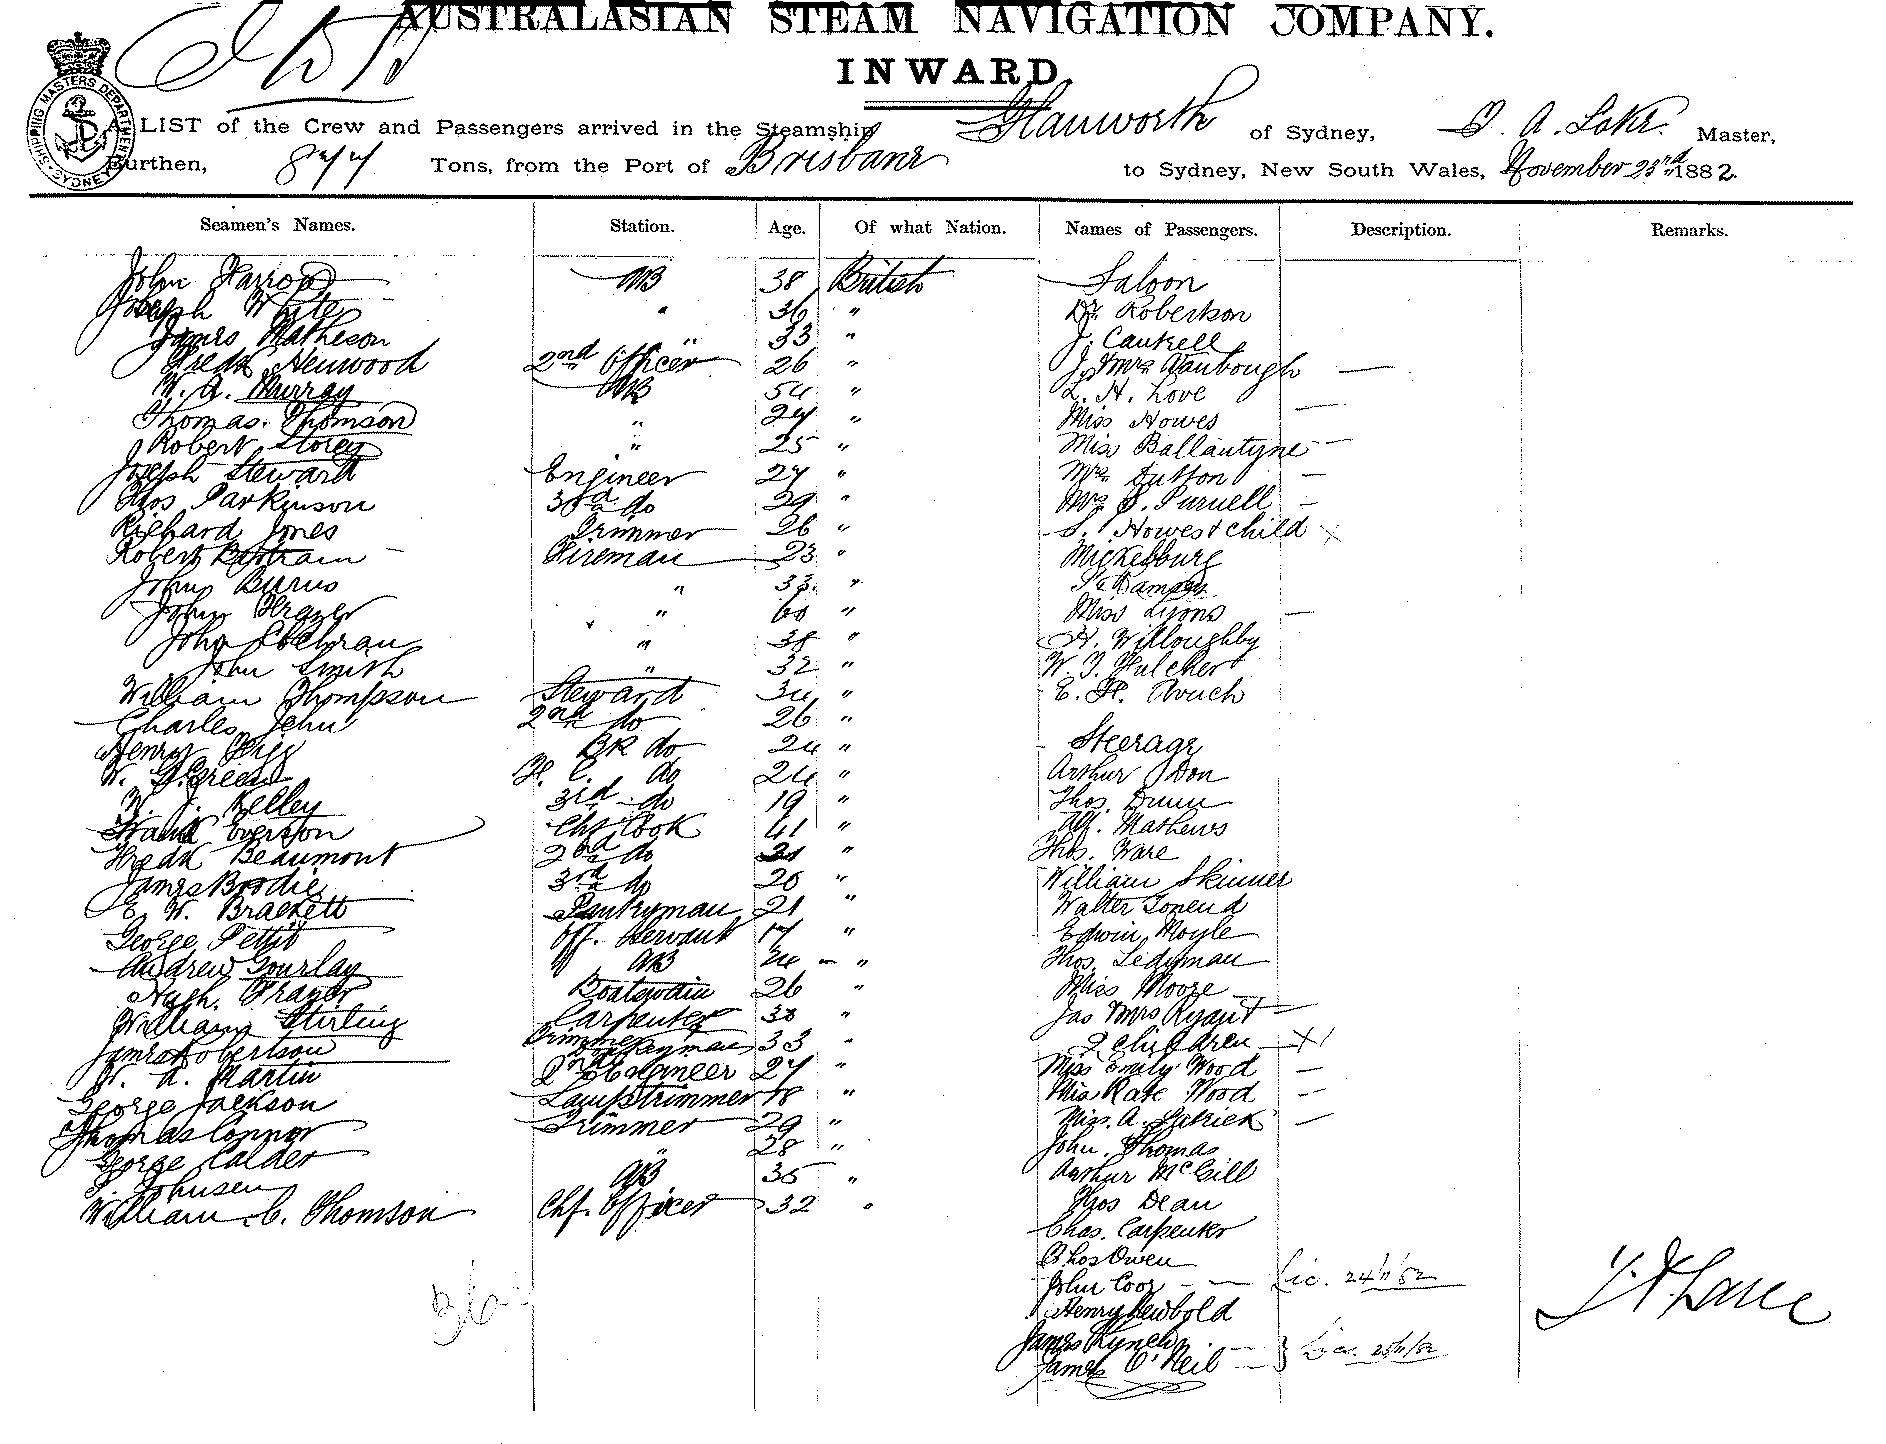 AUSTRALASIAN STEAM NAVIGATION COMPANY.
INWARD.
SHIPPING MASTERS DEPARTMENT SYDNEY
A LIST of the Crew and Passengers arrived in the Steamship Glanworth of Sydney, Master,
Burthen, 877 Tons, from the Port of Brisbane to Sydney, New South Wales, November 23rd 1882.
Seamen's Names. Station. Age. Of what Nation. Names of Passengers. Description. Remarks.
John Harrop AB 38 British Saloon
Joseph White " 36 " Dr. Robertson
James Matheson " 33 " J.
Fredk Henwood 2nd Officer 26 " J. & Mrs Vanbough
W. A. Murray AB 54 " L. H. Love
Thomas Thomson " 24 " Miss Howes
Robert Storey " 25 " Miss Ballantyne
Joseph Stewart Engineer 27 " Mrs Sutton
Thos Parkinson 3rd do 29 " Mrs S. Purnell
Richard Jones Trimmer 26 " S. Howes & child
Robert Bertram Fireman 23 "
John Burns " 33 " Ramsay
John Frazer " 60 " Miss Lyons
John Cochran " 38 " H. Willoughby
John Smith " 32 " W. J. Fulcher
William Thompson Steward 34 " E. H.
Charles John 2nd do 26 "
Henry BR do 24 " Steerage
W. G. Green F. C. do 24 " Arthur Don
W. J. Kelley 3rd do 19 " Thos. Dunn
Frank Everson Chf Cook 41 " Alf. Mathews
Fredk Beaumont 2nd do 21 Thos. Ware
James Brodie 3rd do 20 " William Skinner
E. W. Brackett Pantryman 21 " Walter
George Pettit Off. Servant 17 " Edwin Moyle
Andrew Gourlay AB 24 " Thos. Ledyman
Hugh Frazer Boatswain 26 " Miss Moore
William Stirling Carpenter 38 " Jas & Mrs
James Robertson Trimmer 33 " 2 children
W. A. Martin 2nd Engineer 27 " Miss Emily Wood
George Jackson Lamptrimmer 18 " Miss Kate Wood
Thomas Connor Trimmer 29 " Miss A. Patrick
George Calder " 28 " John Thomas
Johnsen AB 35 " Arthur McGill
William C. Thomson Chf. Officer 32 " Thos Dean
Chas. Carpenter
Thos Owen
John Coor Lic. 24/11/82
Henry Newbold
James
James O'Neil Lic. 25/11/82